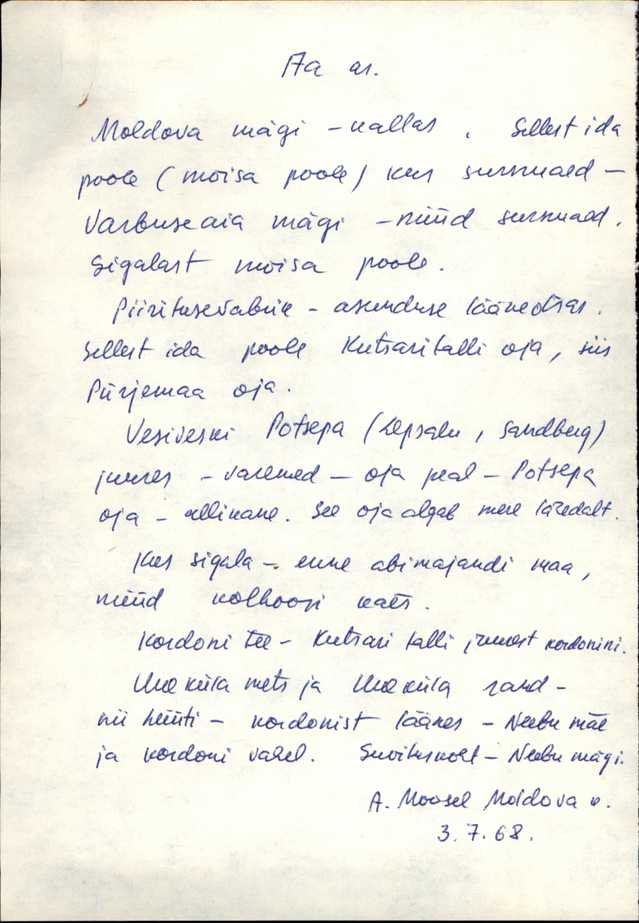 Aa as.
Moldova mägi - kallas. Sellest ida
poole (mõisa poole) kus surnuaed -
Varbuseaia mägi - nüüd surnuaed.
Sigalast mõisa poole.
Piiritusevabrik - asunduse lääneotsas.
Sellest ida poole Kutsaritalli oja, siis
Pürjemaa oja.
Vesiveski Potsepa (Lepsalu, Sandberg)
juures - varemed - oja peal - Potsepa
oja - allikane. See oja algab mere lähedalt.
Kus sigala - enne abimajandi maa,
nüüd kolhoosi käes.
Kordoni tee - Kutsari talli juurest kordonini.
Uhe küla mets ja Uhe küla rand -
nii hüüti - kordonist läänes - Neebu mäe
ja kordoni vahel. Suvituskoht - Neebu mägi.
A. Moosel Moldova k.
3.7.68.